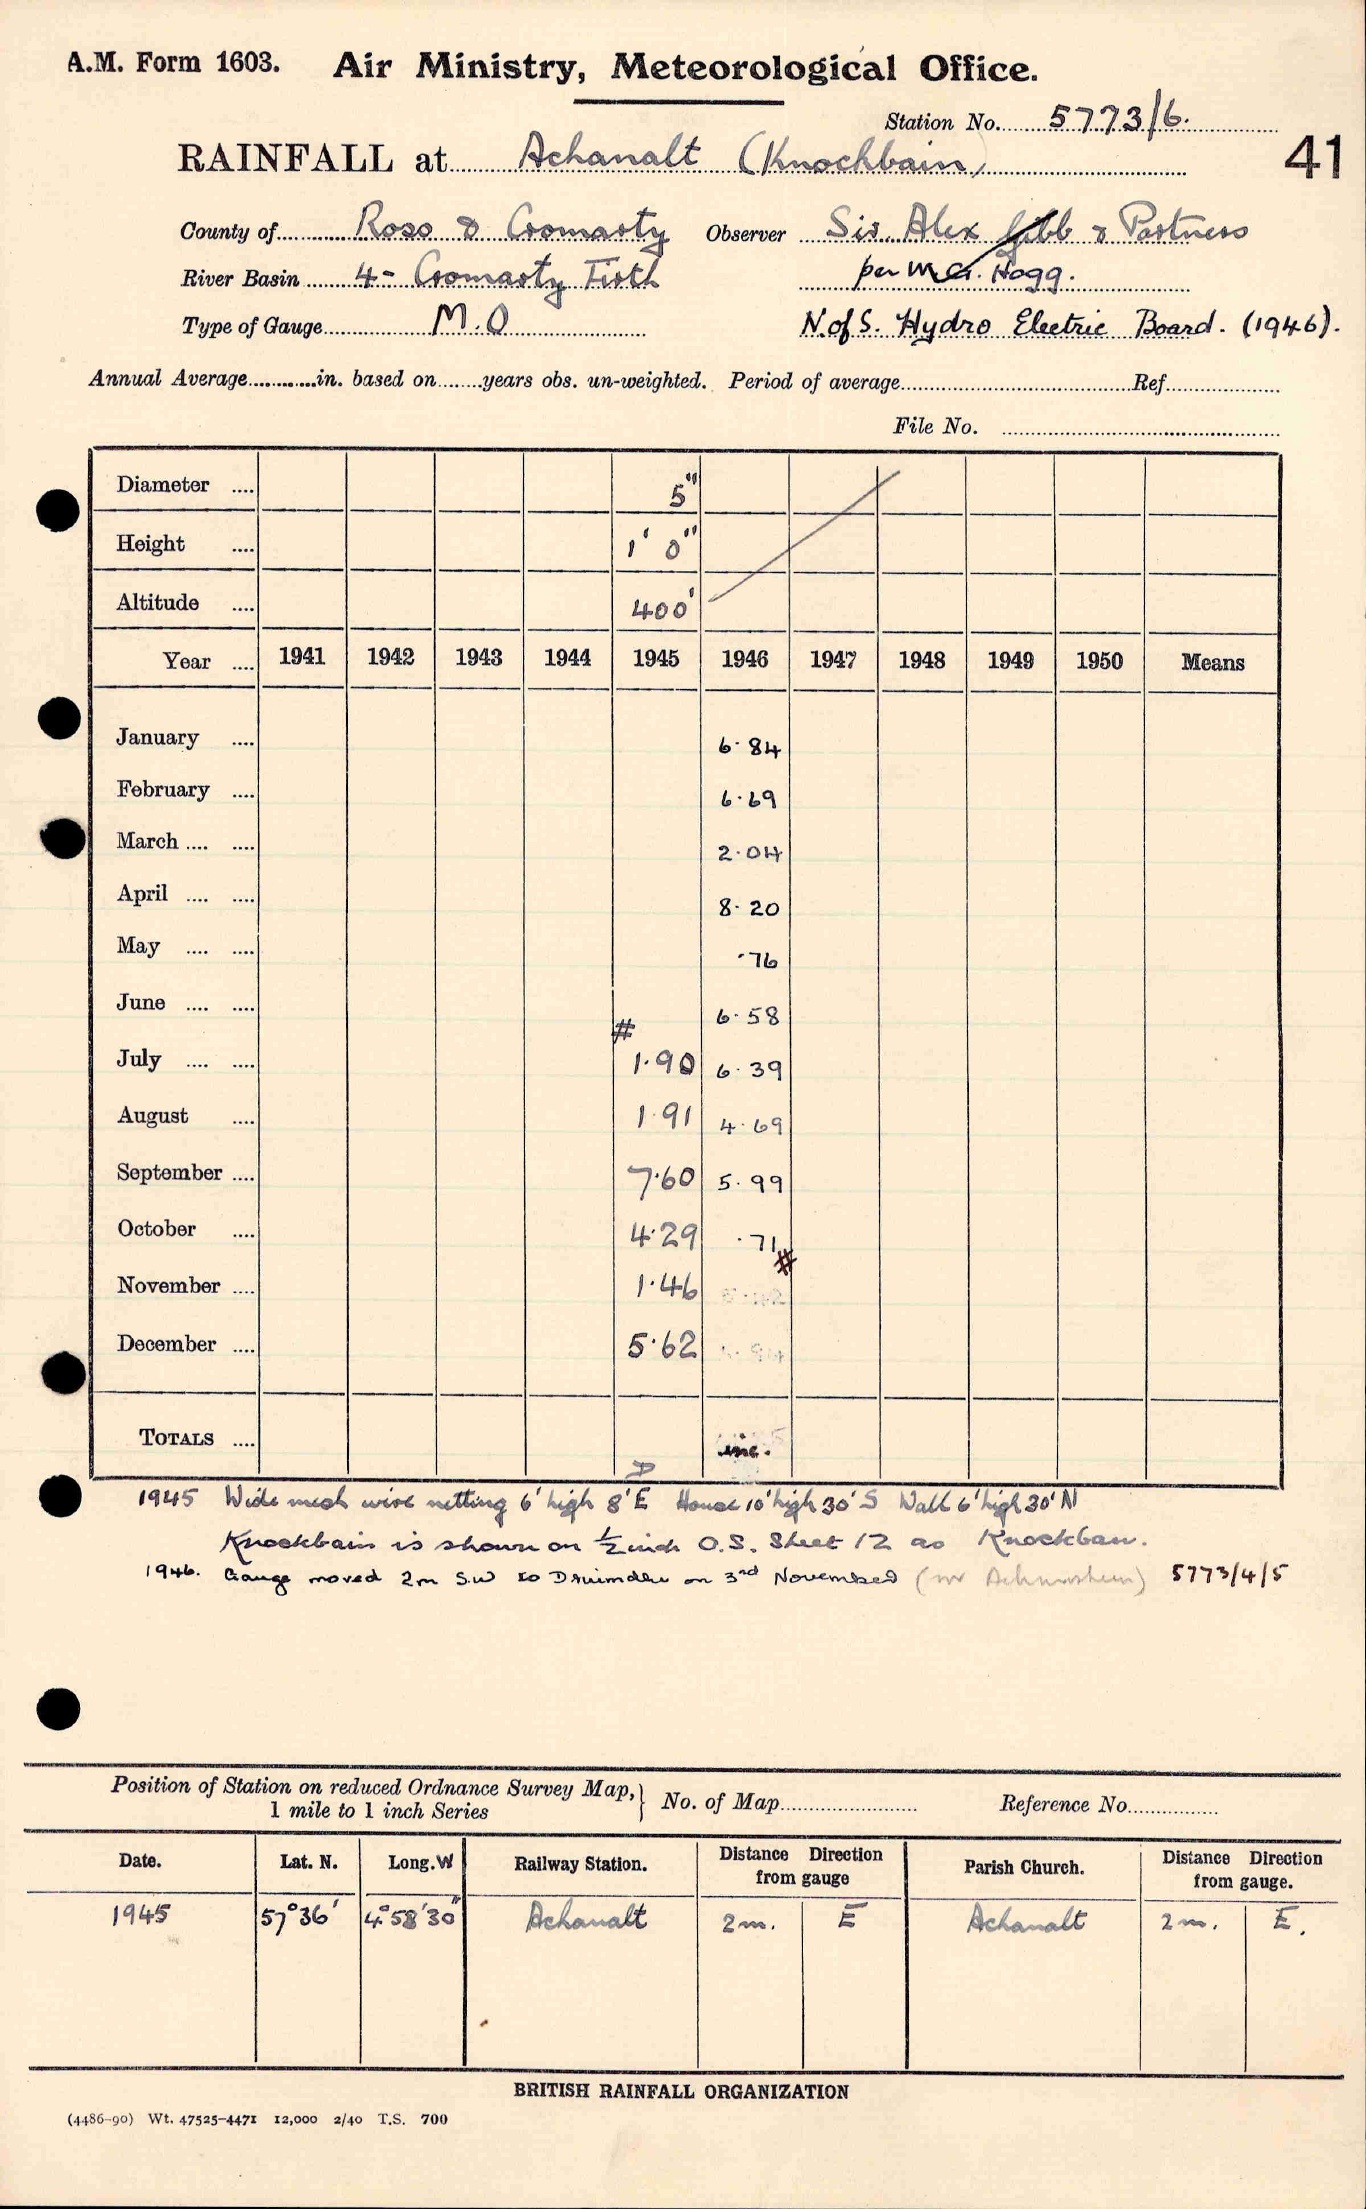 A.M. Form 1603. Air Ministry, Meteorological Office.
Station No. 5773/6.
RAINFALL at Achanalt (Knochbain) 41
County of Ross & Cromarty Observer Sir Alex Gibb & Partners
River Basin 4- Cromarty Firth per M.G. Hogg.
Type of Gauge M.O N. of S. Hydro Electric Board. (1946).
Annual Average............in. based on.......years obs. un-weighted. Period of average..............Ref..............
File No. ..............
Diameter .... 5"
Height .... 1' 0"
Altitude .... 400'
Year .... 1941 1942 1943 1944 1945 1946 1947 1948 1949 1950 Means
January .... 6·84
February .... 6·69
March .... .... 2·04
April .... .... 8·20
May .... .... ·76
June .... .... 6·58
#
July .... .... 1·90 6·39
August .... 1·91 4·69
September .... 7·60 5·99
October .... 4·29 ·71
#
November .... 1·46
December .... 5·62
TOTALS .... inc.
1945 Wide mesh wire netting 6' high 8' E House 10' high 30' S Wall 6' high 30' N
Knockbain is shown on ½ inch O.S. Sheet 12 as Knockban.
1946. Gauge moved 2m SW to Druimdhu on 3rd November (nr Achnasheen) 5773/4/5
Position of Station on reduced Ordnance Survey Map,} No. of Map.............. Reference No..............
1 mile to 1 inch Series
Date. Lat. N. Long. W Railway Station. Distance Direction from gauge Parish Church. Distance Direction from gauge.
1945 57° 36' 4° 58' 30" Achanalt 2m. E Achanalt 2m. E.
BRITISH RAINFALL ORGANIZATION
(4486-90) Wt. 47525-4471 12,000 2/40 T.S. 700